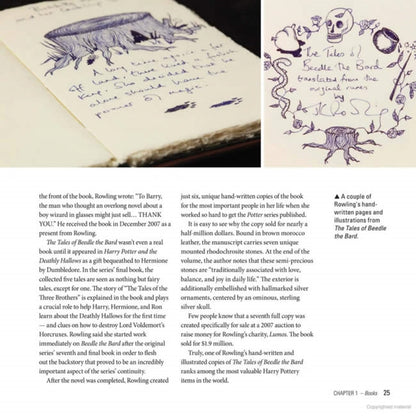 A long time ago, in a far
The Tales of
Beedle the Bard
translated from the
original runes
by
the front of the book, Rowling wrote: "To Barry,
the man who thought an overlong novel about a
boy wizard in glasses might just sell… THANK
YOU." He received the book in December 2007 as a
present from Rowling.
The Tales of Beedle the Bard wasn't even a real
book until it appeared in Harry Potter and the
Deathly Hallows as a gift bequeathed to Hermione
by Dumbledore. In the series' final book, the
collected five tales are seen as nothing but fairy
tales, except for one. The story of "The Tales of the
Three Brothers" is explained in the book and plays
a crucial role to help Harry, Hermione, and Ron
learn about the Deathly Hallows for the first time
— and clues on how to destroy Lord Voldemort's
Horcruxes. Rowling said she started work
immediately on Beedle the Bard after the original
series' seventh and final book in order to flesh
out the backstory that proved to be an incredibly
important aspect of the series' continuity.
After the novel was completed, Rowling created
just six, unique hand-written copies of the book
for the most important people in her life when she
worked so hard to get the Potter series published.
It is easy to see why the copy sold for nearly a
half-million dollars. Bound in brown morocco
leather, the manuscript carries seven unique
mounted rhodochrosite stones. At the end of the
volume, the author notes that these semi-precious
stones are "traditionally associated with love,
balance, and joy in daily life." The exterior is
additionally embellished with hallmarked silver
ornaments, centered by an ominous, sterling
silver skull.
Few people know that a seventh full copy was
created specifically for sale at a 2007 auction to
raise money for Rowling's charity, Lumos. The book
sold for $1.9 million.
Truly, one of Rowling's hand-written and
illustrated copies of The Tales of Beedle the Bard
ranks among the most valuable Harry Potter
items in the world.
▲ A couple of
Rowling's hand-
written pages and
illustrations from
The Tales of Beedle
the Bard.
CHAPTER 1 — Books 25
Copyrighted material